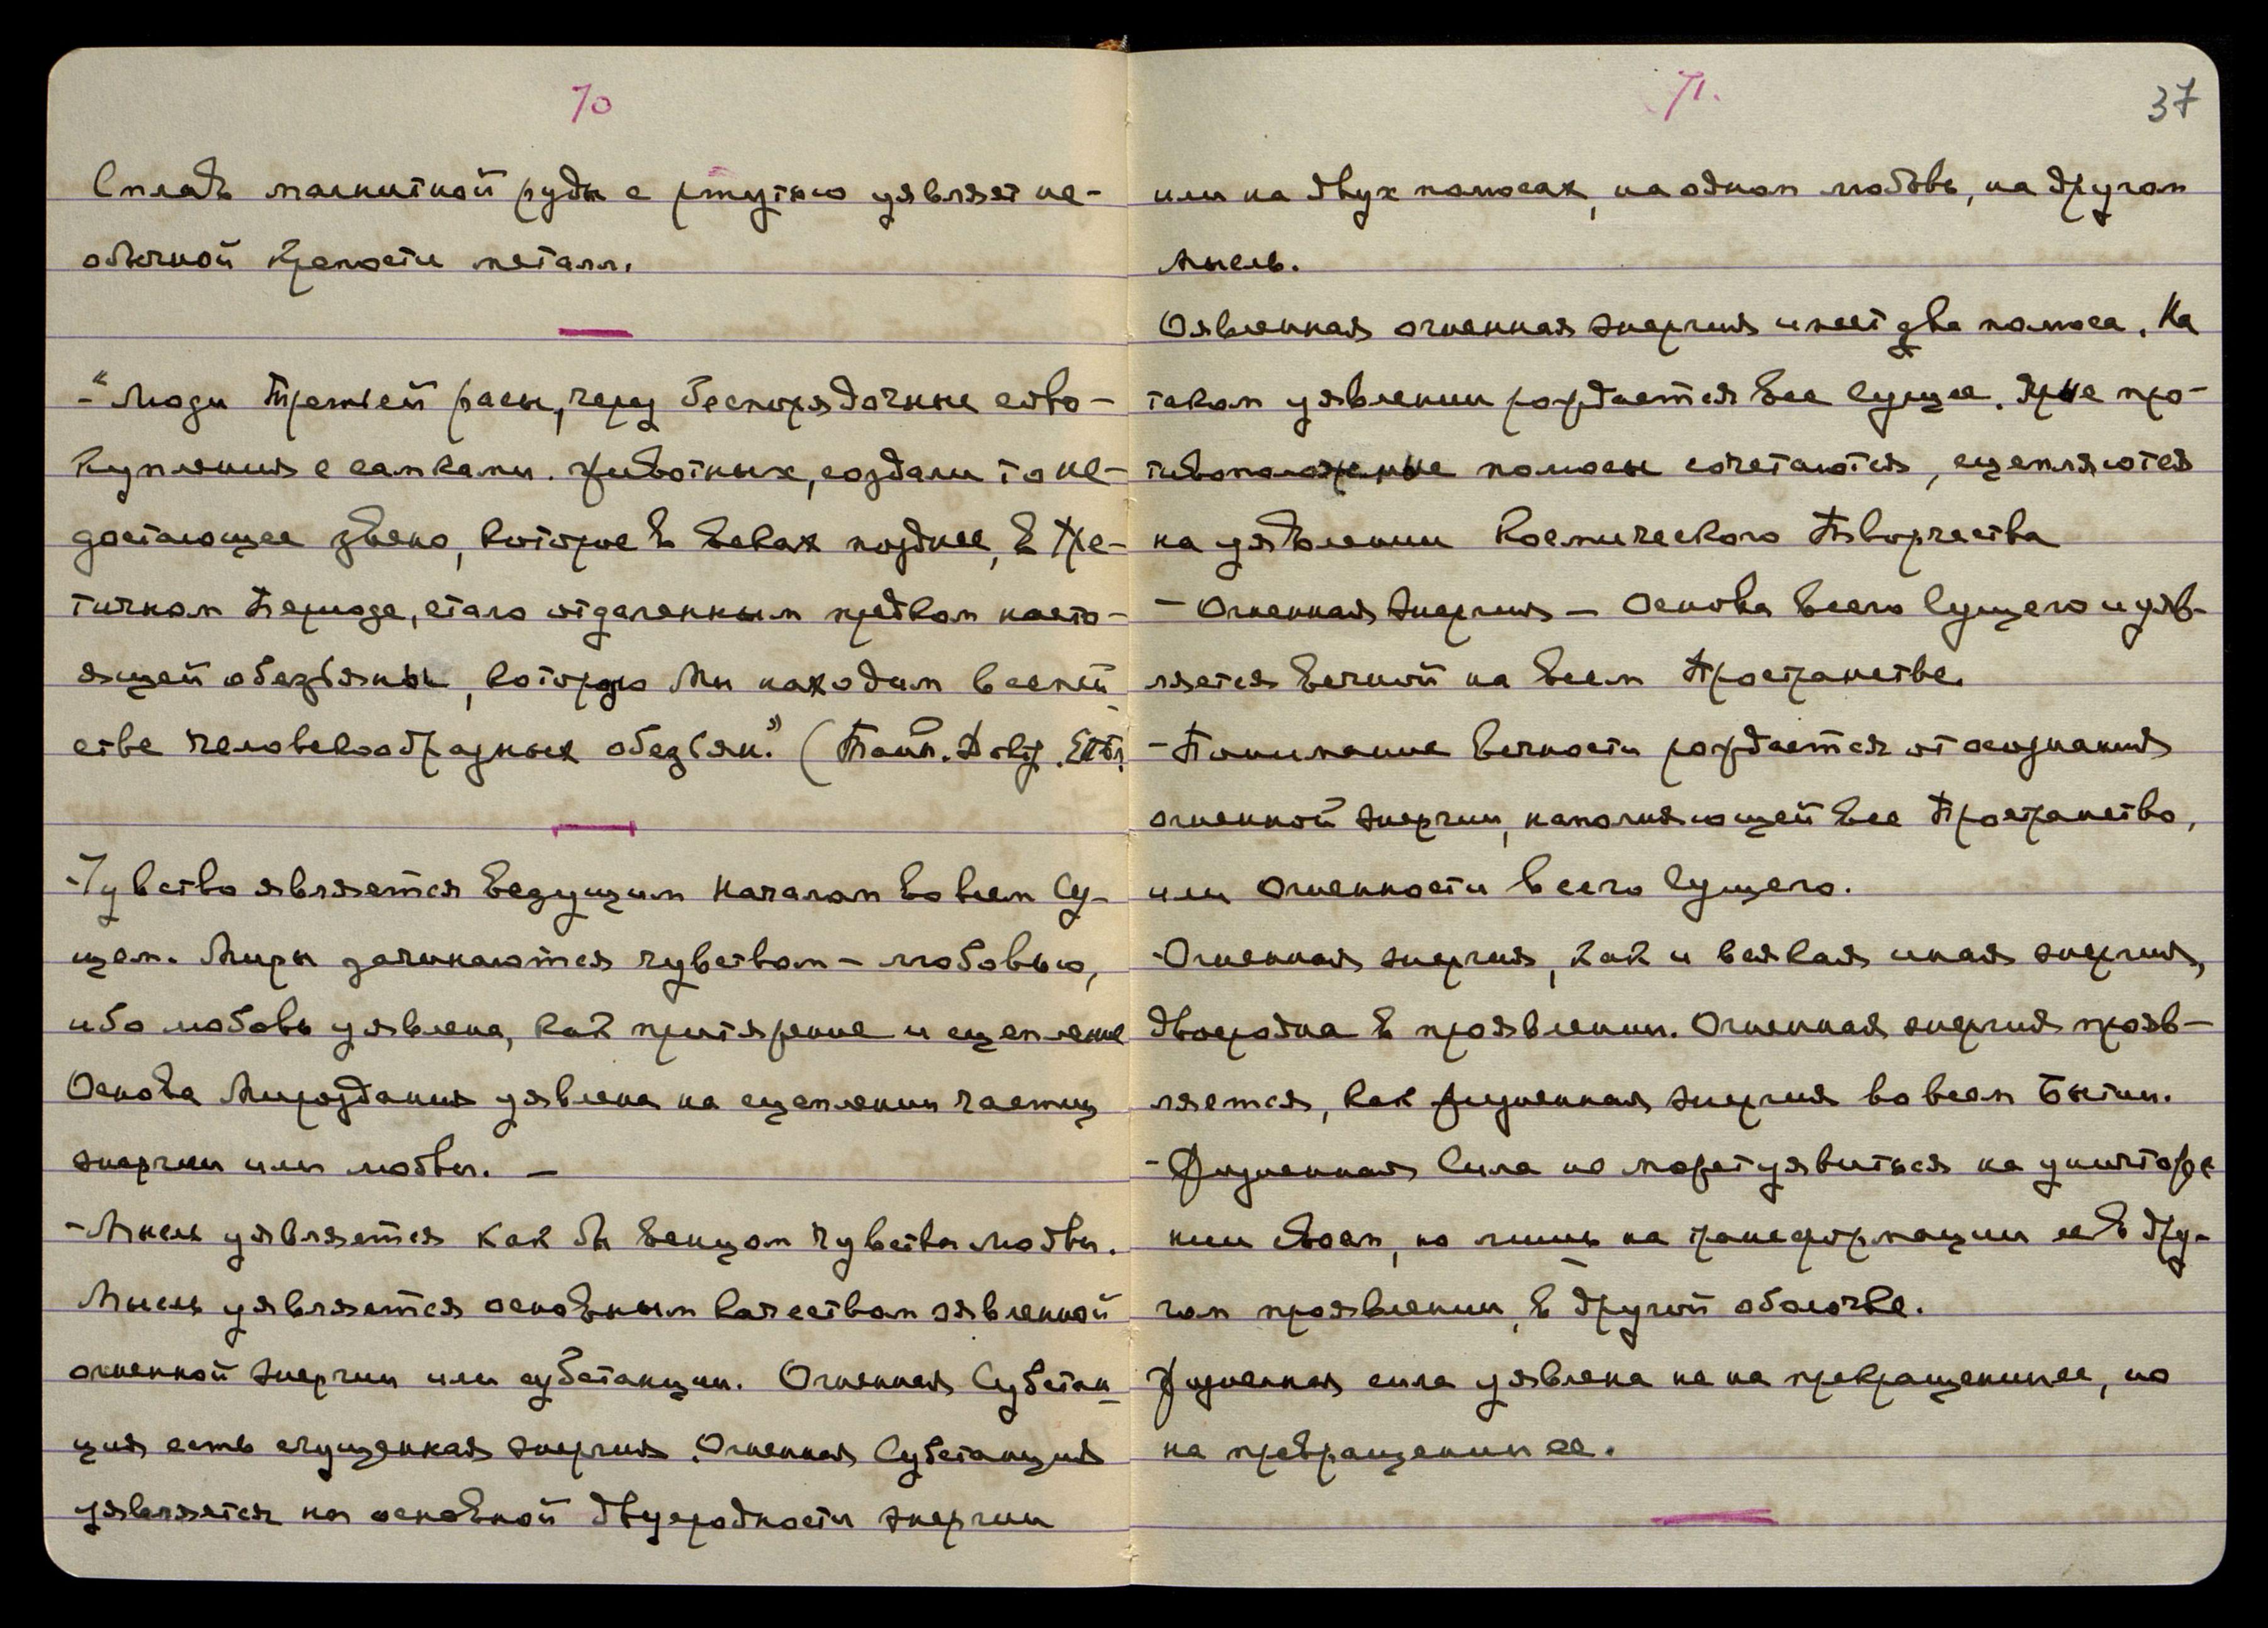 70
Сплавъ магнитной руды с ртутью уявляет не-
обычной крепости металл.
-"Люди Третьей расы, через беспорядочные сово-
купления с самками животных, создали то не-
достающее звено, которое в веках позднее, в Тре-
тичном Периоде, стало отдаленным предком насто-
ящей обезьяны, которую мы находим в семей-
стве человекообразных обезьян." (Тайн. Dokt.
-Чувство является ведущим Началом во всем Су-
щем. Миры зачинаются чувством - любовью,
ибо любовь уявлена, как притяжение и сцепление
Основа Мироздания уявлена на сцеплении частиц
энергии или любви. -
-Мысль уявляется как бы венцом чувства любви.
Мысль уявляется основным качеством оявленной
огненной энергии или субстанции. Огненная Субстан-
ция есть сгущенная энергия. Огненная Субстанция
уявляется на основной двуродности энергии
71.
37
или на двух полюсах, на одном любовь, на другом
мысль.
Оявленная огненная энергия имеет два полюса. На
таком уявлении рождается все Сущее. Ярые про-
тивоположные полюсы сочетаются, сцепляются
на уявлении Космического Творчества
- Огненная Энергия - Основа всего Сущего и уяв-
ляется вечной на всем Пространстве.
-Понимание вечности рождается от осознания
огненной энергии, наполняющей все Пространство,
или Огненности всего Сущего.
-Огненная энергия, как и всякая иная энергия,
двоеродна в проявлении. Огненная энергия прояв-
ляется, как жизненная энергия во всем Бытии.
-Жизненная Сила не может уявиться на уничтоже
нии своем, но лишь на трансформации ее в дру-
гом проявлении, в другой оболочке.
Жизненная сила уявлена не на прекращении ее, но
на превращении ее.